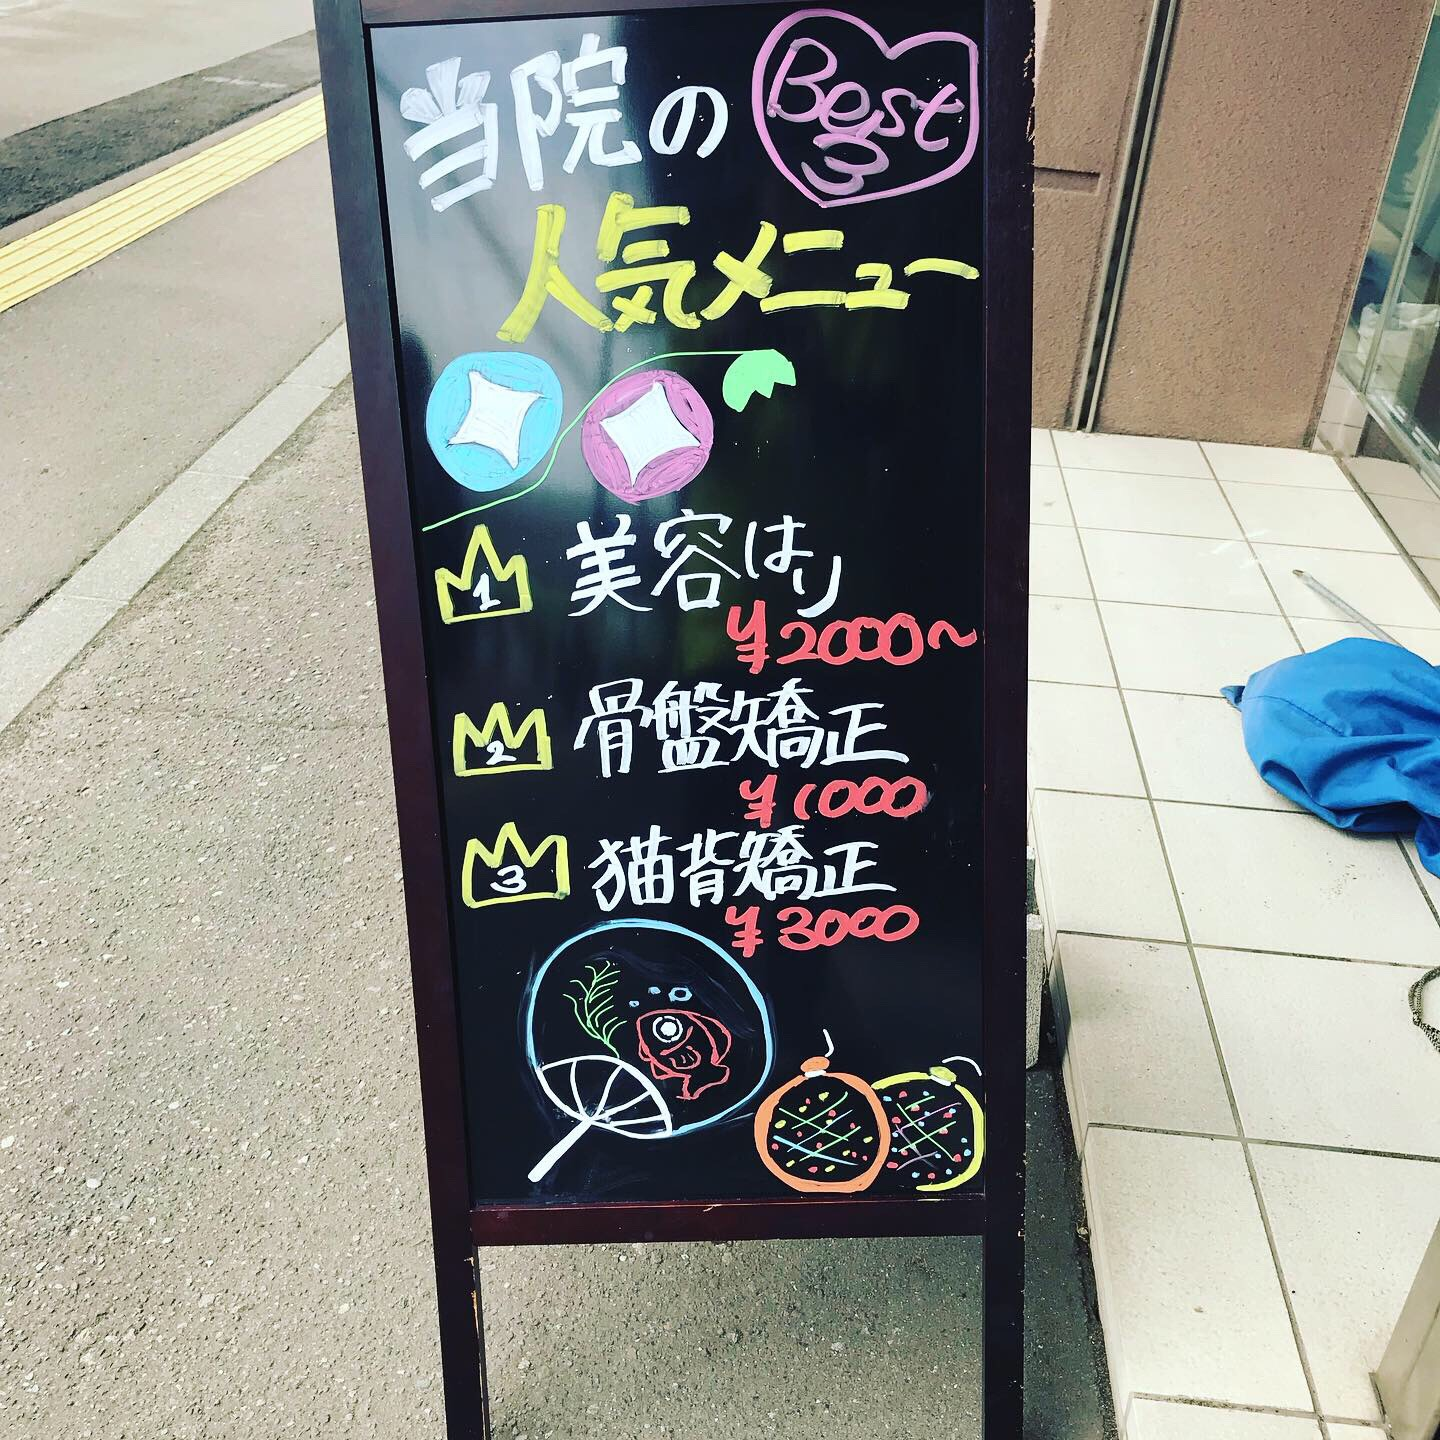 当院の
Best
3
人気メニュー
1 美容はり
¥2000~
2 骨盤矯正
¥1000
3 猫背矯正
¥3000